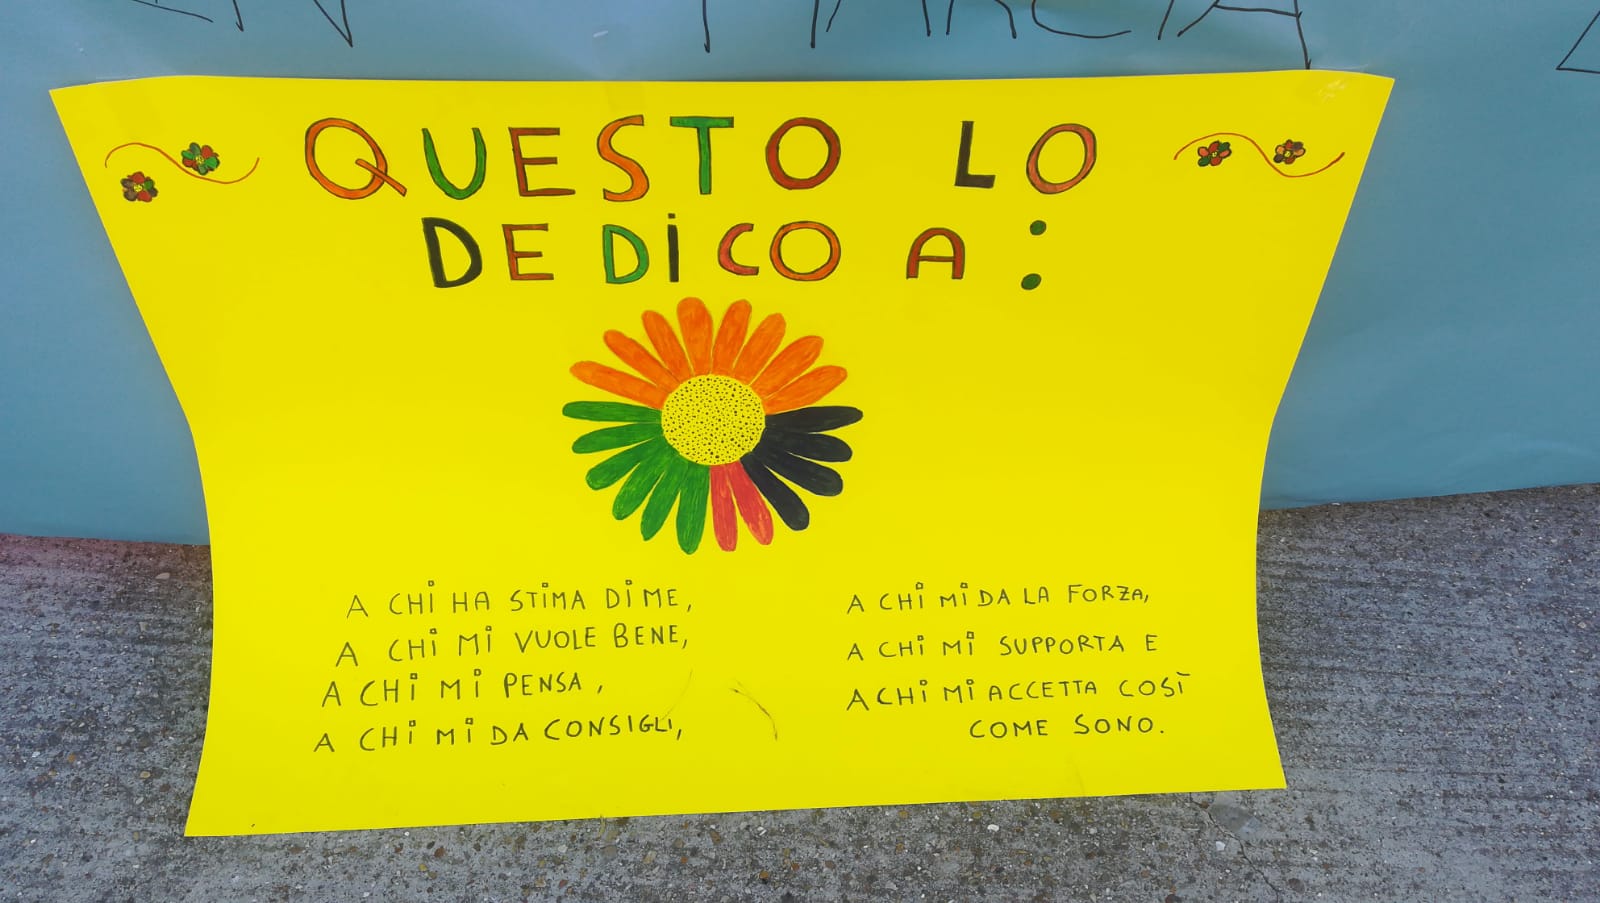 QUESTO LO
DEDICO A:
A CHI HA STIMA DI ME,
A CHI MI VUOLE BENE,
A CHI MI PENSA,
A CHI MI DA CONSIGLI,
A CHI MI DA LA FORZA,
A CHI MI SUPPORTA E
A CHI MI ACCETTA COSÌ
COME SONO.